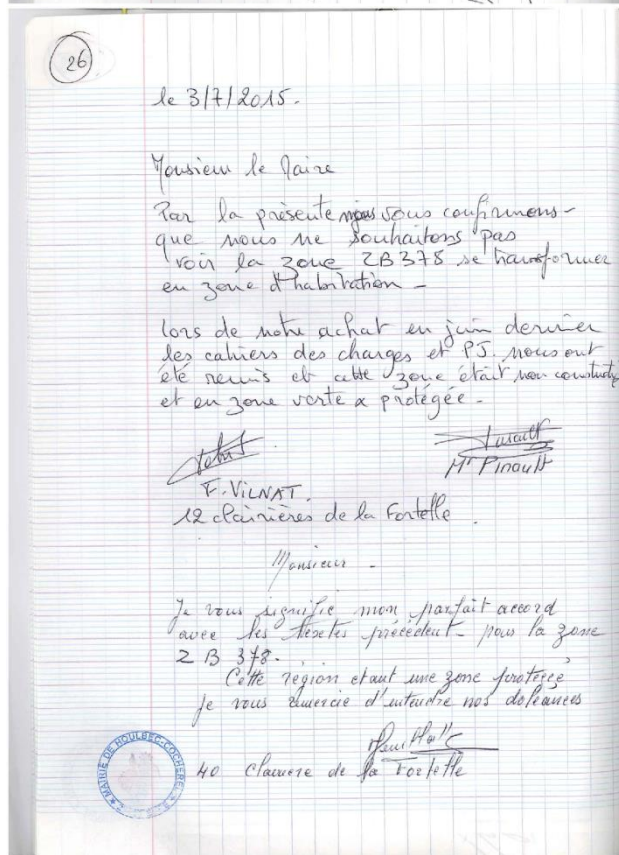 26
le 3/7/2015.
Monsieur le Maire
Par la présente nous vous confirmons -
que nous ne souhaitons pas
voir la zone ZB378 se transformer
en zone d'habitation -
lors de notre achat en juin dernier
les cahiers des charges et PJ. nous ont
été remis et cette zone était non
et en zone verte & protégée -
F. VILNAT.
Mr Pinault
12 clairières de la Fortelle.
Monsieur -
Je vous signifie mon parfait accord
avec les textes précédent - pour la zone
ZB 378.
Cette région étant une zone protégée
je vous remercie d'entendre nos doléances
40 Clairière de la Fortelle
MAIRIE DE HOULBEC-COCHEREL